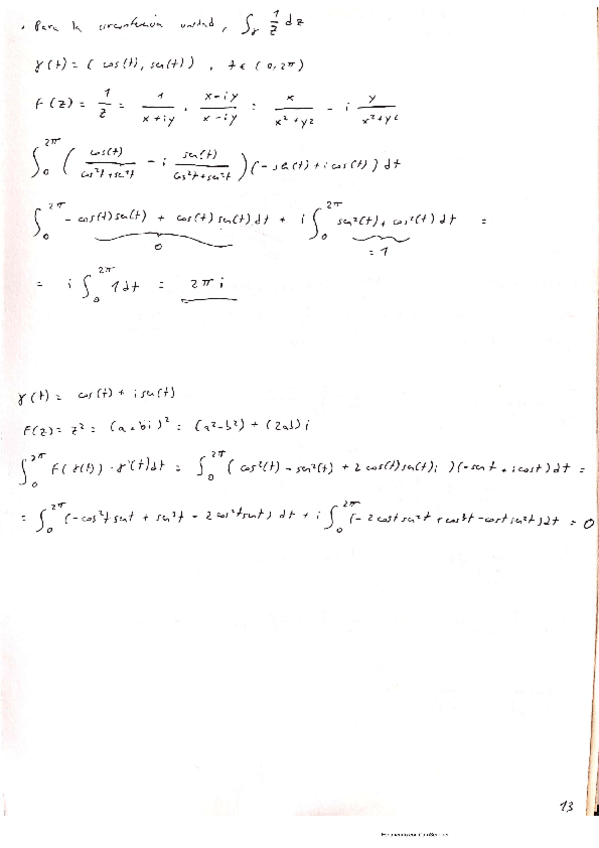 . Para la circunferencia unidad, ∫_γ 1/z dz
γ(t) = (cos(t), sen(t)) , t ∈ (0, 2π)
F(z) = 1/z = 1/(x+iy) · (x-iy)/(x-iy) = x/(x²+y²) - i y/(x²+y²)
∫_0^{2π} ( cos(t)/(cos²t+sen²t) - i sen(t)/(cos²t+sen²t) ) (-sen(t) + i cos(t)) dt
∫_0^{2π} -cos(t)sen(t) + cos(t)sen(t) dt + i ∫_0^{2π} sen²(t) + cos²(t) dt =
0 = 1
= i ∫_0^{2π} 1 dt = 2π i
γ(t) = cos(t) + i sen(t)
F(z) = z² = (a+bi)² = (a²-b²) + (2ab)i
∫_0^{2π} F(γ(t)) · γ'(t) dt = ∫_0^{2π} (cos²(t) - sen²(t) + 2cos(t)sen(t)i)(-sent + icost) dt =
= ∫_0^{2π} (-cos²tsent + sen³t - 2cos²tsent) dt + i ∫_0^{2π} (-2costsen²t + cos³t - costsen²t) dt = 0
13